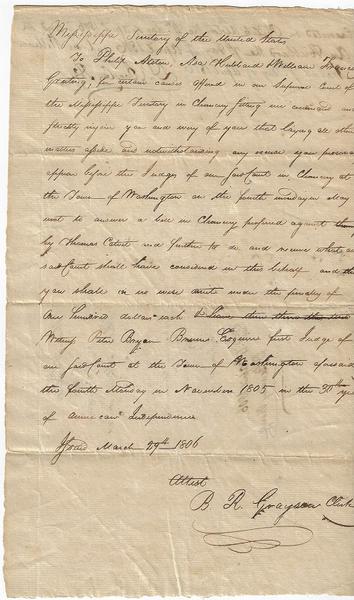 Mississippi Territory of the United States
To Philip Alston, Asa Hubbard & William Francis
Greeting, for certain causes offered in our Supreme Court of
the Mississippi Territory in Chancery sitting we command and
strictly injoin you and every of you that laying all other
matters aside and notwithstanding any excuse you personally
appear before the Judges of our said Court in Chancery at
the Town of Washington on the fourth monday in May
next to answer a bill in Chancery prefered against
by Thomas and further to do and receive what our
said Court shall have considered in this behalf and
you shall in no wise omit under the penalty of
One hundred dollars each
Witness Peter Bryan Bruin Esquire first Judge of
our said Court at the Town of Washington aforesaid
the fourth Monday in November 1805 in the 30th year
of american Independence
Issued March 29th 1806
Attest
B R Grayson Clerk